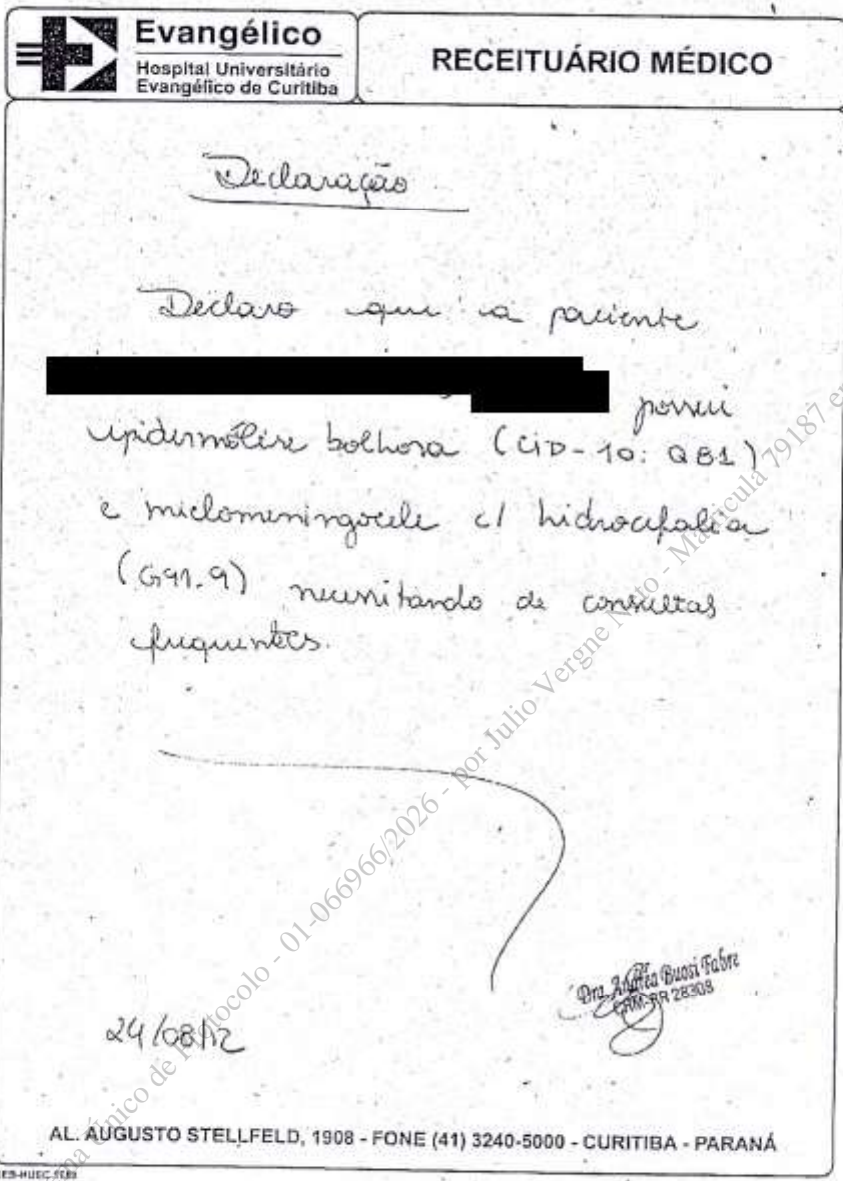 Evangélico
Hospital Universitário
Evangélico de Curitiba
RECEITUÁRIO MÉDICO
Declaração
Declaro que a paciente
possui
epidermólise bolhosa (CID-10: Q81)
e mielomeningocele c/ hidrocefalia
(G91.9) necessitando de consultas
frequentes.
Dra. Andréa Buosi Fabre
CRM-PR 28308
24/08/12
AL. AUGUSTO STELLFELD, 1908 - FONE (41) 3240-5000 - CURITIBA - PARANÁ
Único de Protocolo - 01-066966/2026 - por Julio Vergne - Matrícula 79187